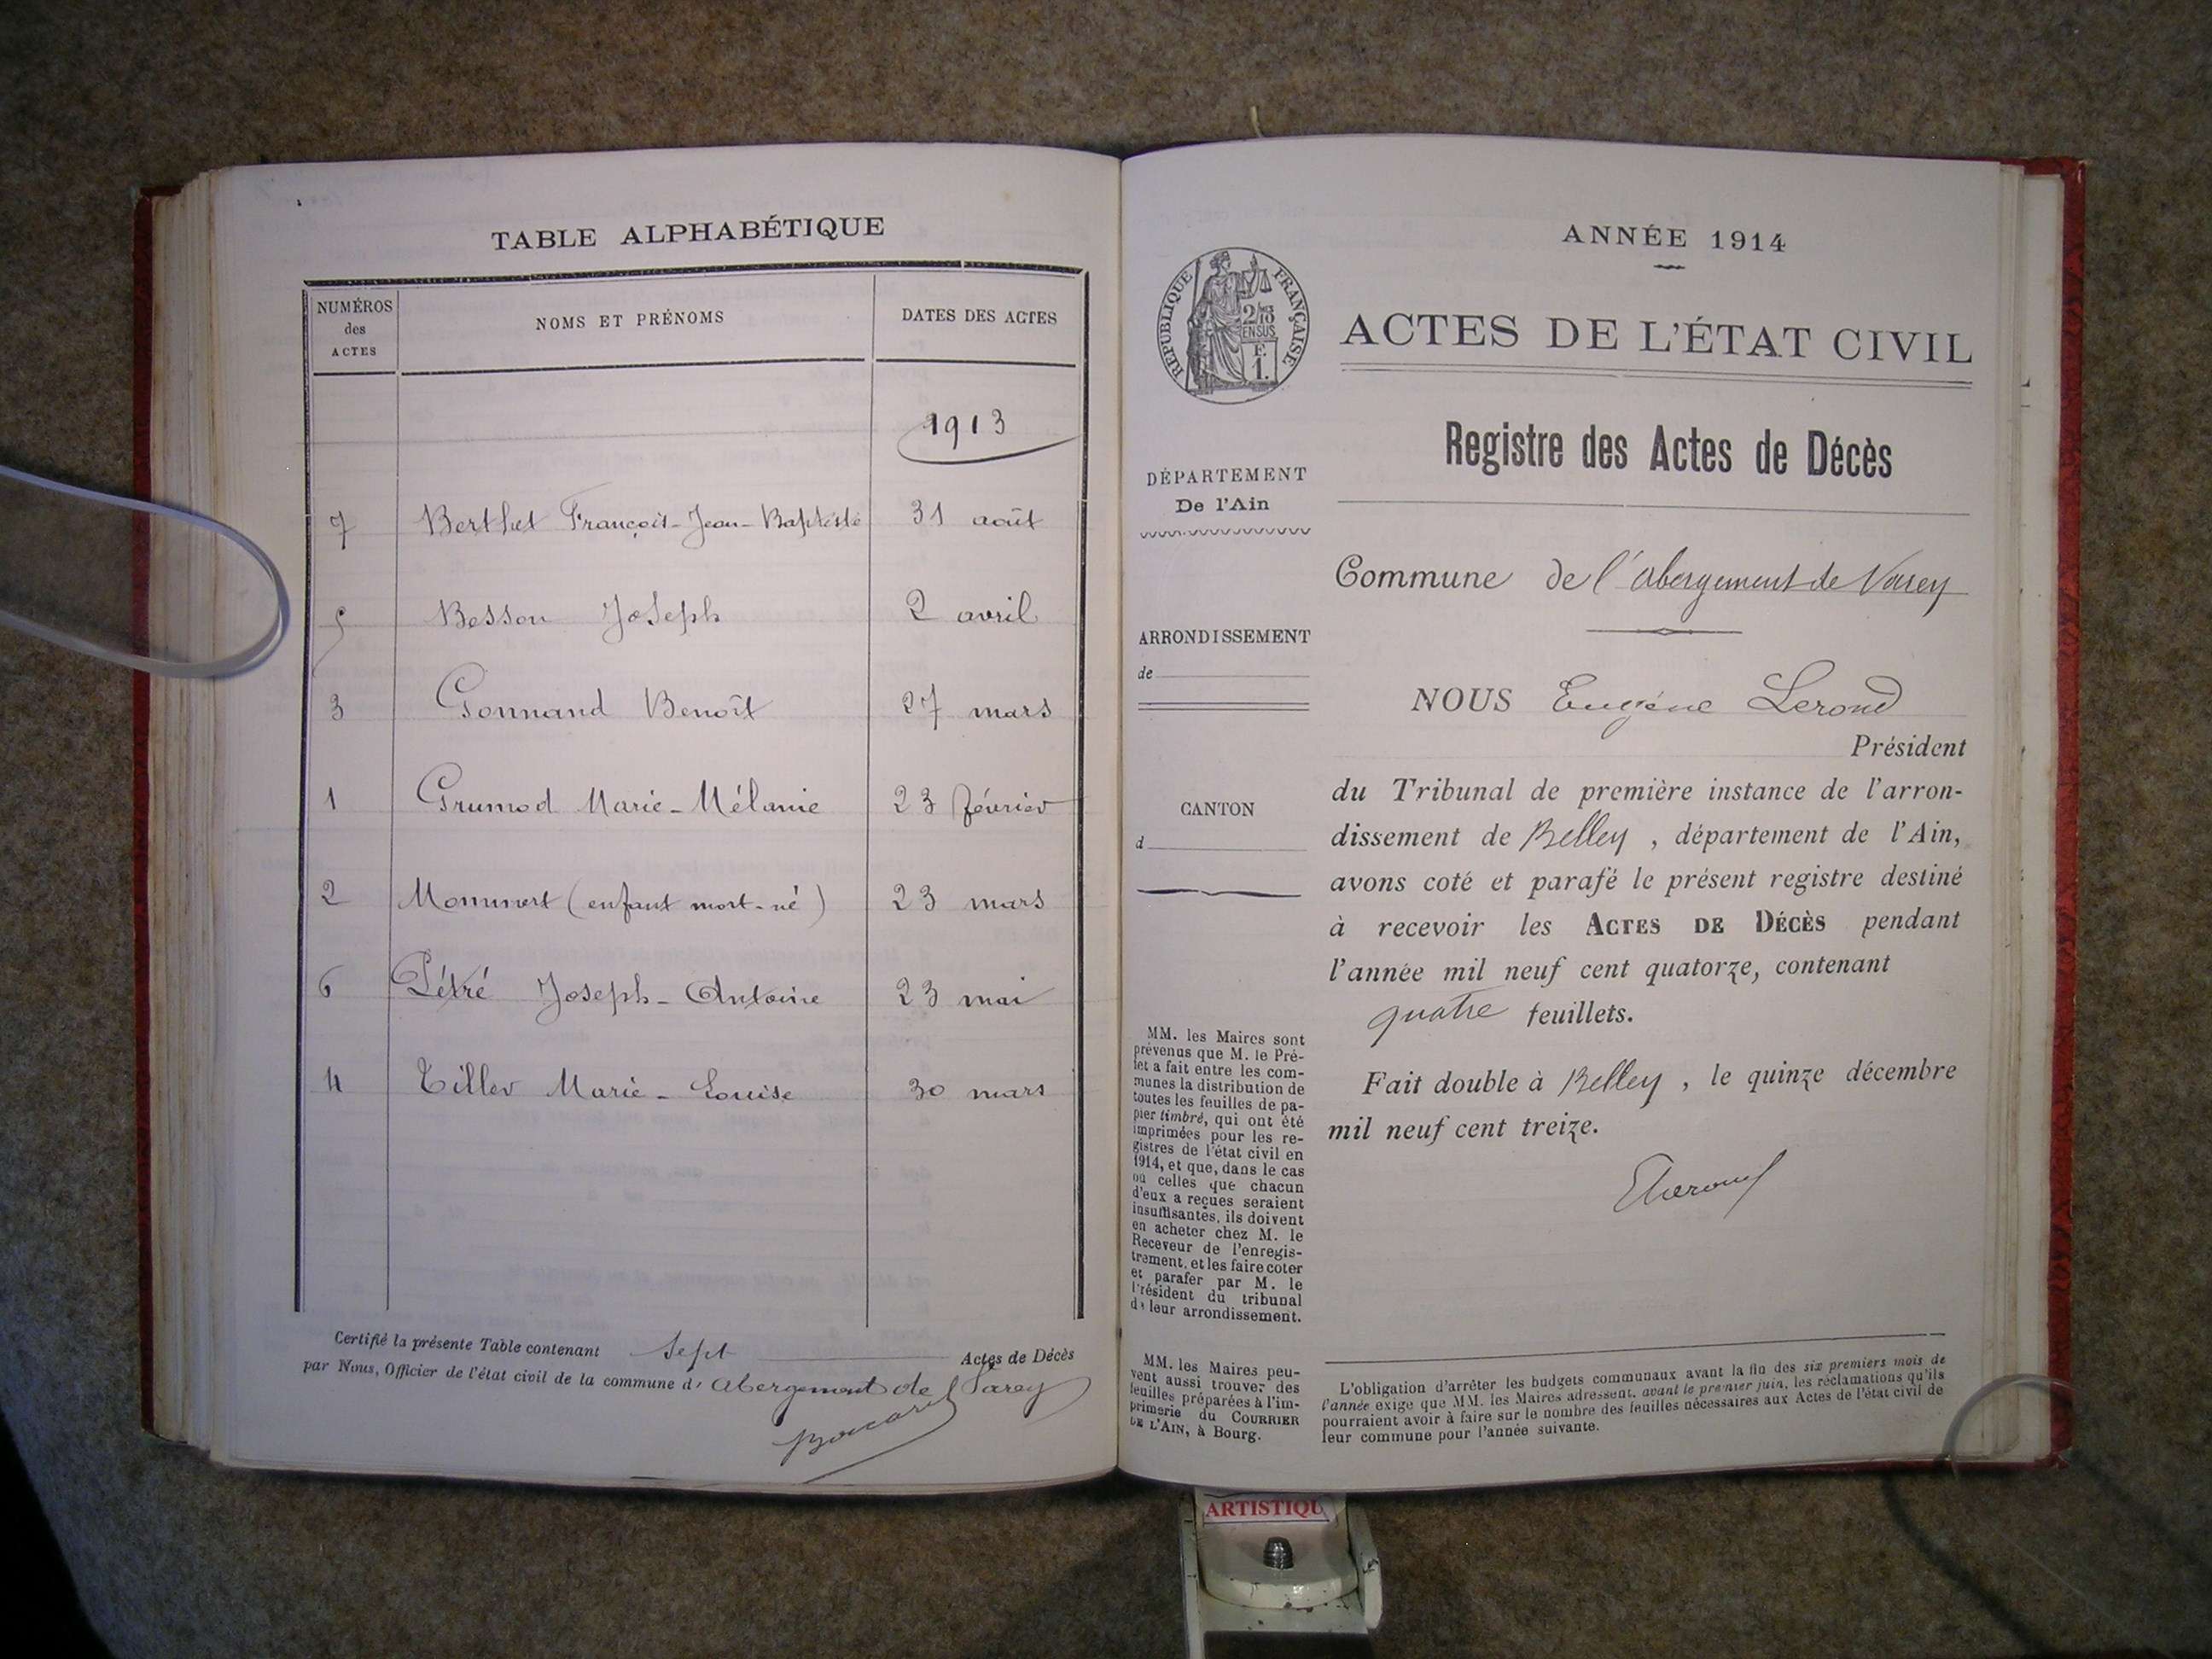 TABLE ALPHABÉTIQUE
NUMÉROS
des
ACTES
NOMS ET PRÉNOMS
DATES DES ACTES
1913
7 Berthet François-Jean-Baptiste 31 août
5 Besson Joseph 2 avril
3 Gonnand Benoît 27 mars
1 Grumod Marie-Mélanie 23 février
2 Mommert (enfant mort-né) 23 mars
6 Pétré Joseph-Antoine 23 mai
4 Tiller Marie-Louise 30 mars
Certifié la présente Table contenant sept Actes de Décès
par Nous, Officier de l'état civil de la commune d' Abergement de Varey
ANNÉE 1914
RÉPUBLIQUE FRANÇAISE
2/10
EN SUS
F.
1.
ACTES DE L'ÉTAT CIVIL
Registre des Actes de Décès
DÉPARTEMENT
De l'Ain
Commune de l'Abergement de Varey
ARRONDISSEMENT
de
CANTON
d
NOUS Eugène Lerond
Président
du Tribunal de première instance de l'arron-
dissement de Belley, département de l'Ain,
avons coté et parafé le présent registre destiné
à recevoir les ACTES DE DÉCÈS pendant
l'année mil neuf cent quatorze, contenant
quatre feuillets.
Fait double à Belley, le quinze décembre
mil neuf cent treize.
MM. les Maires sont
prévenus que M. le Pré-
fet a fait entre les com-
munes la distribution de
toutes les feuilles de pa-
pier timbré, qui ont été
imprimées pour les re-
gistres de l'état civil en
1914, et que, dans le cas
où celles que chacun
d'eux a reçues seraient
insuffisantes, ils doivent
en acheter chez M. le
Receveur de l'enregis-
trement, et les faire coter
et parafer par M. le
Président du tribunal
de leur arrondissement.
MM. les Maires peu-
vent aussi trouver des
feuilles préparées à l'im-
primerie du COURRIER
DE L'AIN, à Bourg.
L'obligation d'arrêter les budgets communaux avant la fin des six premiers mois de
l'année exige que MM. les Maires adressent, avant le premier juin, les réclamations qu'ils
pourraient avoir à faire sur le nombre des feuilles nécessaires aux Actes de l'état civil de
leur commune pour l'année suivante.
ARTISTIQU